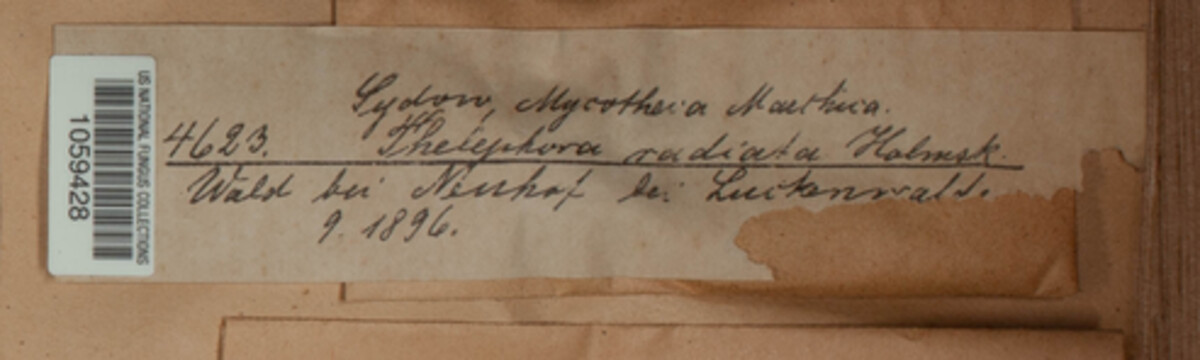 US NATIONAL FUNGUS COLLECTIONS
1059428
Sydow, Mycotheca Marchica.
4623. Thelephora radiata Holmsk.
Wald bei Neuhof bei Luckenwald.
9. 1896.